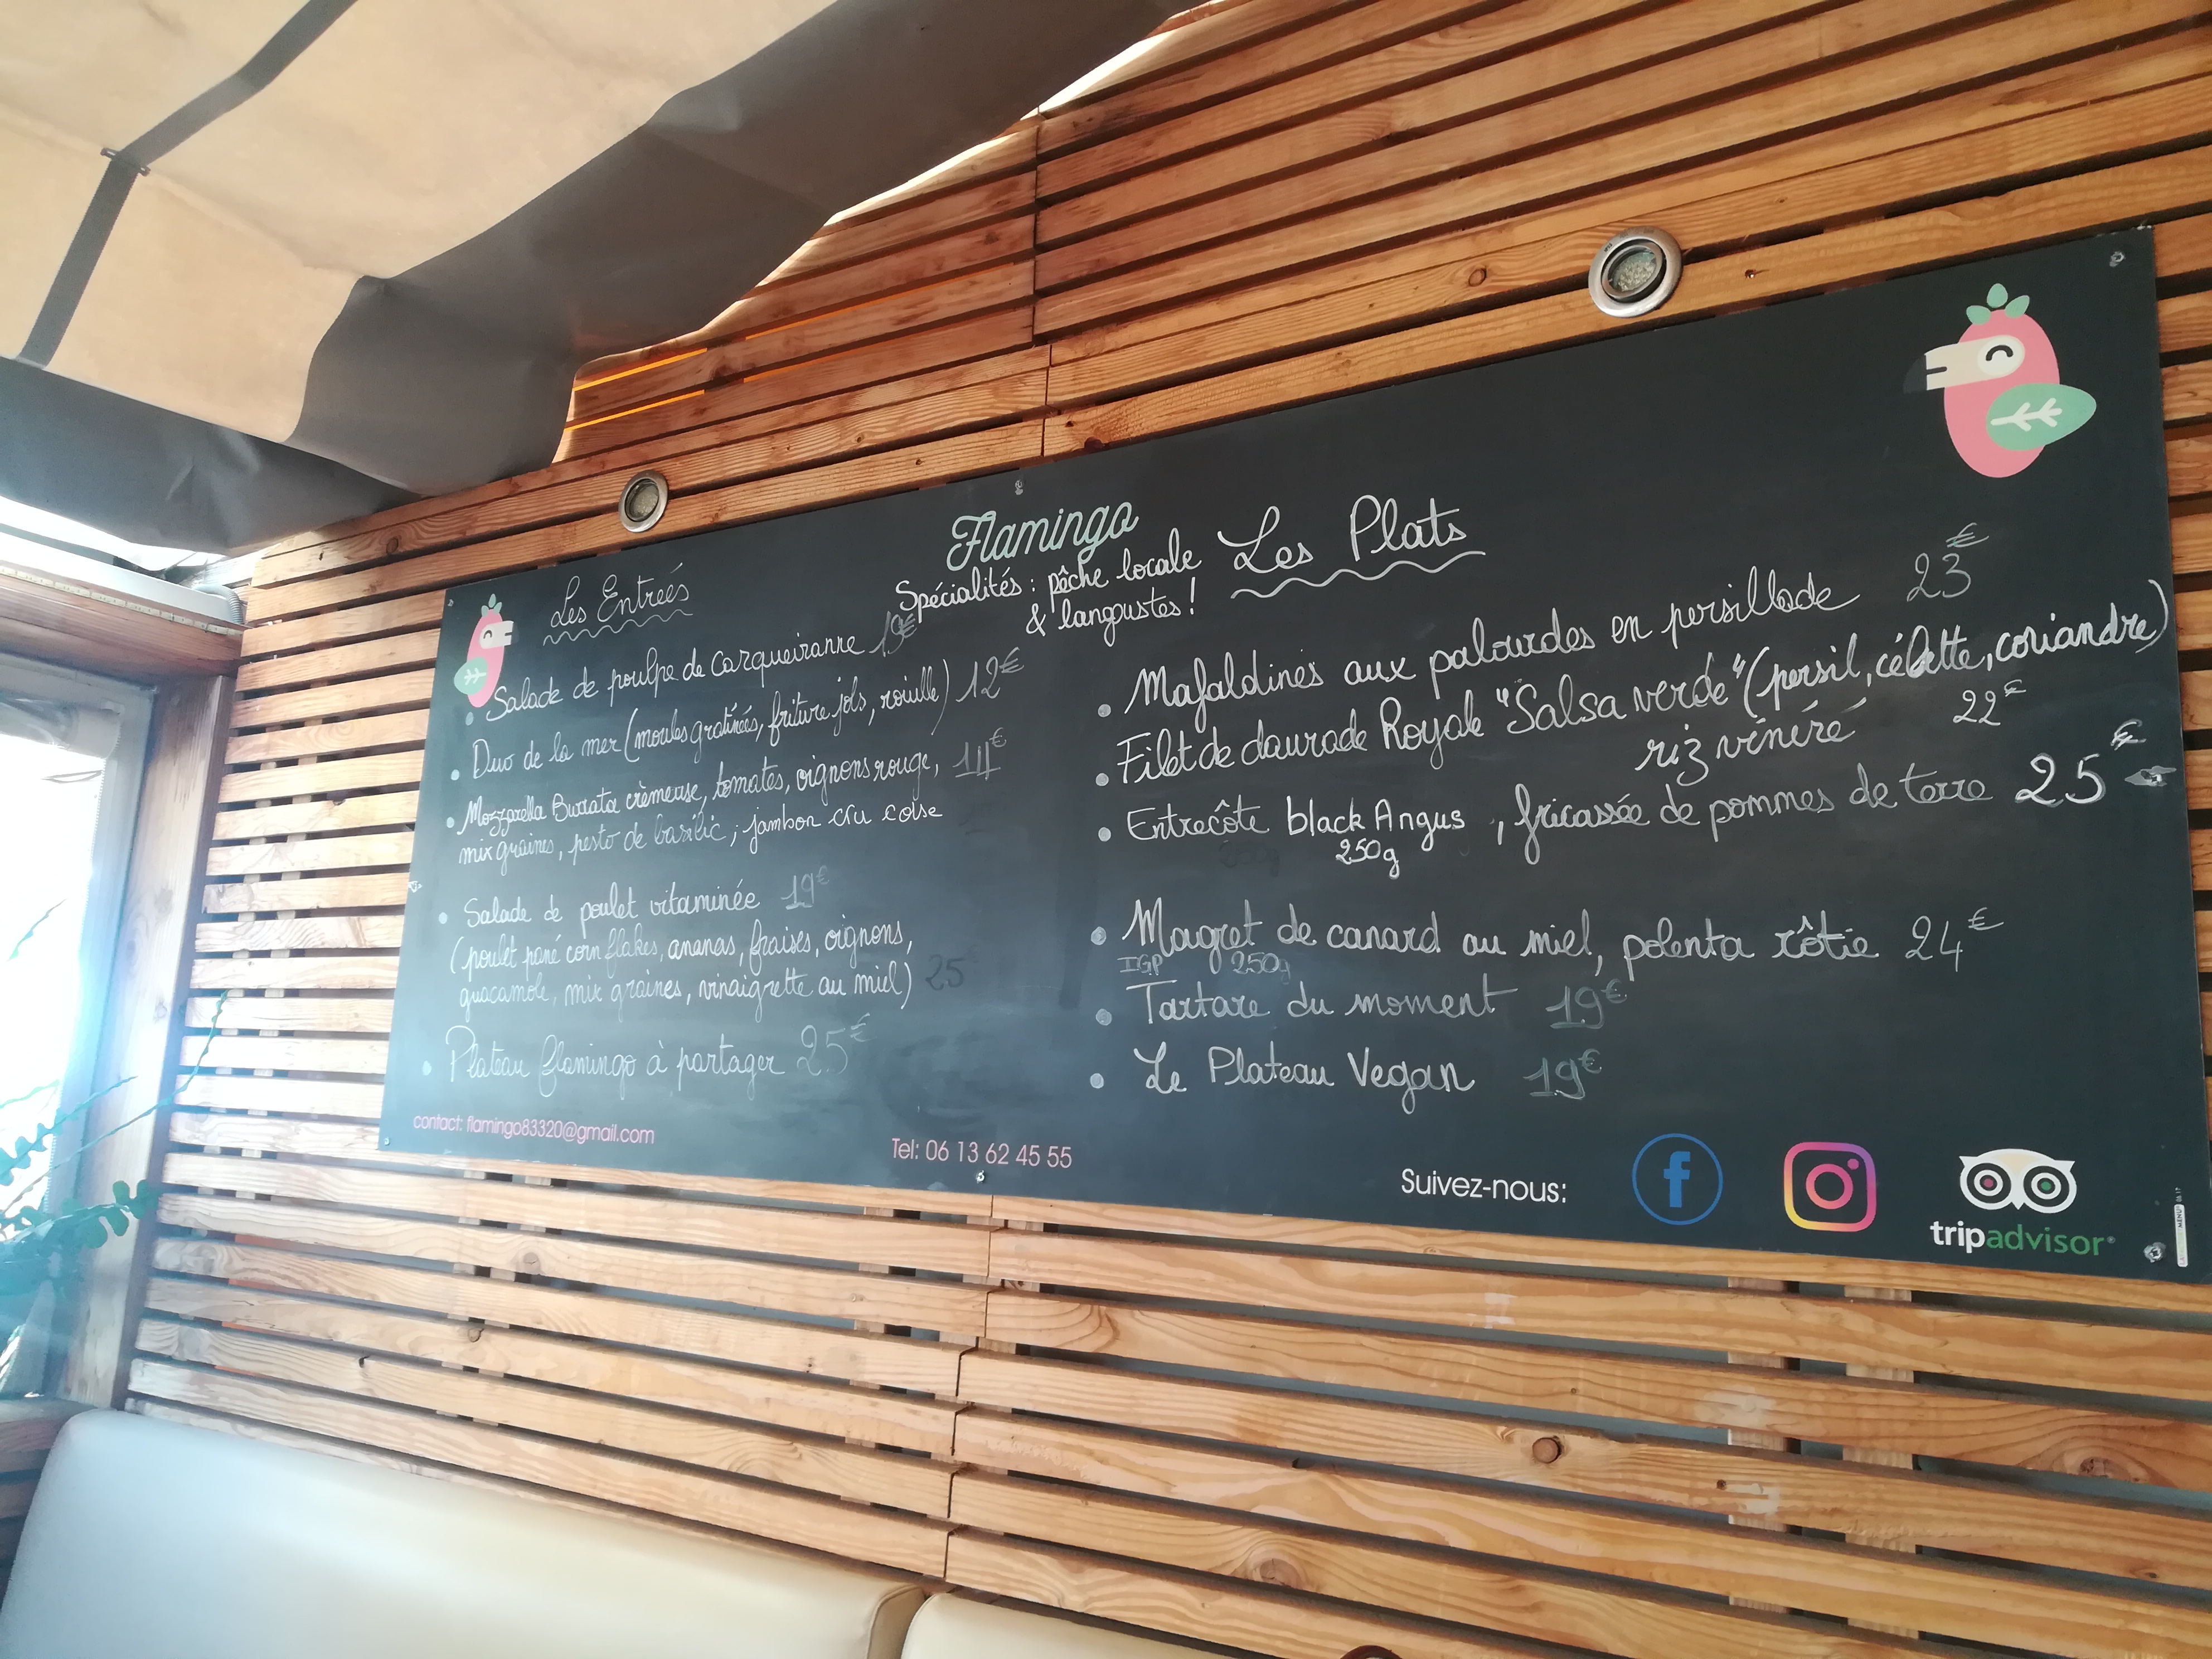 Flamingo
Spécialités : pêche locale
& langoustes !
Les Entrées
• Salade de poulpe de Carqueiranne 19€
• Duo de la mer (moules gratinées, friture jols, rouille) 12€
• Mozzarella Burrata crèmeuse, tomates, oignons rouge, 14€
mix graines, pesto de basilic, jambon cru corse
• Salade de poulet vitaminée 19€
(poulet pané corn flakes, ananas, fraises, oignons,
guacamole, mix graines, vinaigrette au miel)
• Plateau flamingo à partager 25€
Les Plats
• Mafaldines aux palourdes en persillade 23€
• Filet de daurade Royale "Salsa verde" (persil, cébette, coriandre)
riz vénéré 22€
• Entrecôte black Angus, fricassée de pommes de terre 25€
250g
• Magret de canard au miel, polenta rôtie 24€
IGP 250g
• Tartare du moment 19€
• Le Plateau Vegan 19€
contact: flamingo83320@gmail.com
Tel: 06 13 62 45 55
Suivez-nous:
f
tripadvisor